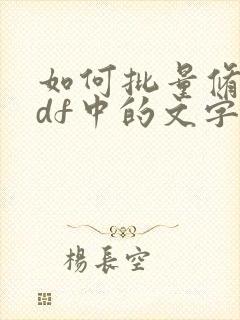 如何批量修
df中的文字
楊長空